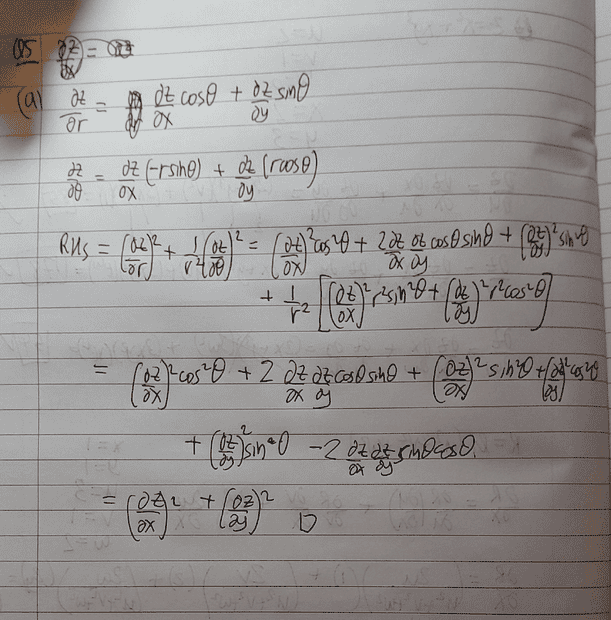 Q5
(a) ∂z/∂r = ∂z/∂x cosθ + ∂z/∂y sinθ
∂z/∂θ = ∂z/∂x (-rsinθ) + ∂z/∂y (rcosθ)
RHS = (∂z/∂r)² + 1/r² (∂z/∂θ)² = (∂z/∂x)² cos²θ + 2 ∂z/∂x ∂z/∂y cosθ sinθ + (∂z/∂y)² sin²θ
+ 1/r² [(∂z/∂x)² r² sin²θ + (∂z/∂y)² r² cos²θ]
= (∂z/∂x)² cos²θ + 2 ∂z/∂x ∂z/∂y cosθ sinθ + (∂z/∂x)² sin²θ + (∂z/∂y)² cos²θ
+ (∂z/∂y)² sin²θ - 2 ∂z/∂x ∂z/∂y sinθ cosθ.
= (∂z/∂x)² + (∂z/∂y)² □